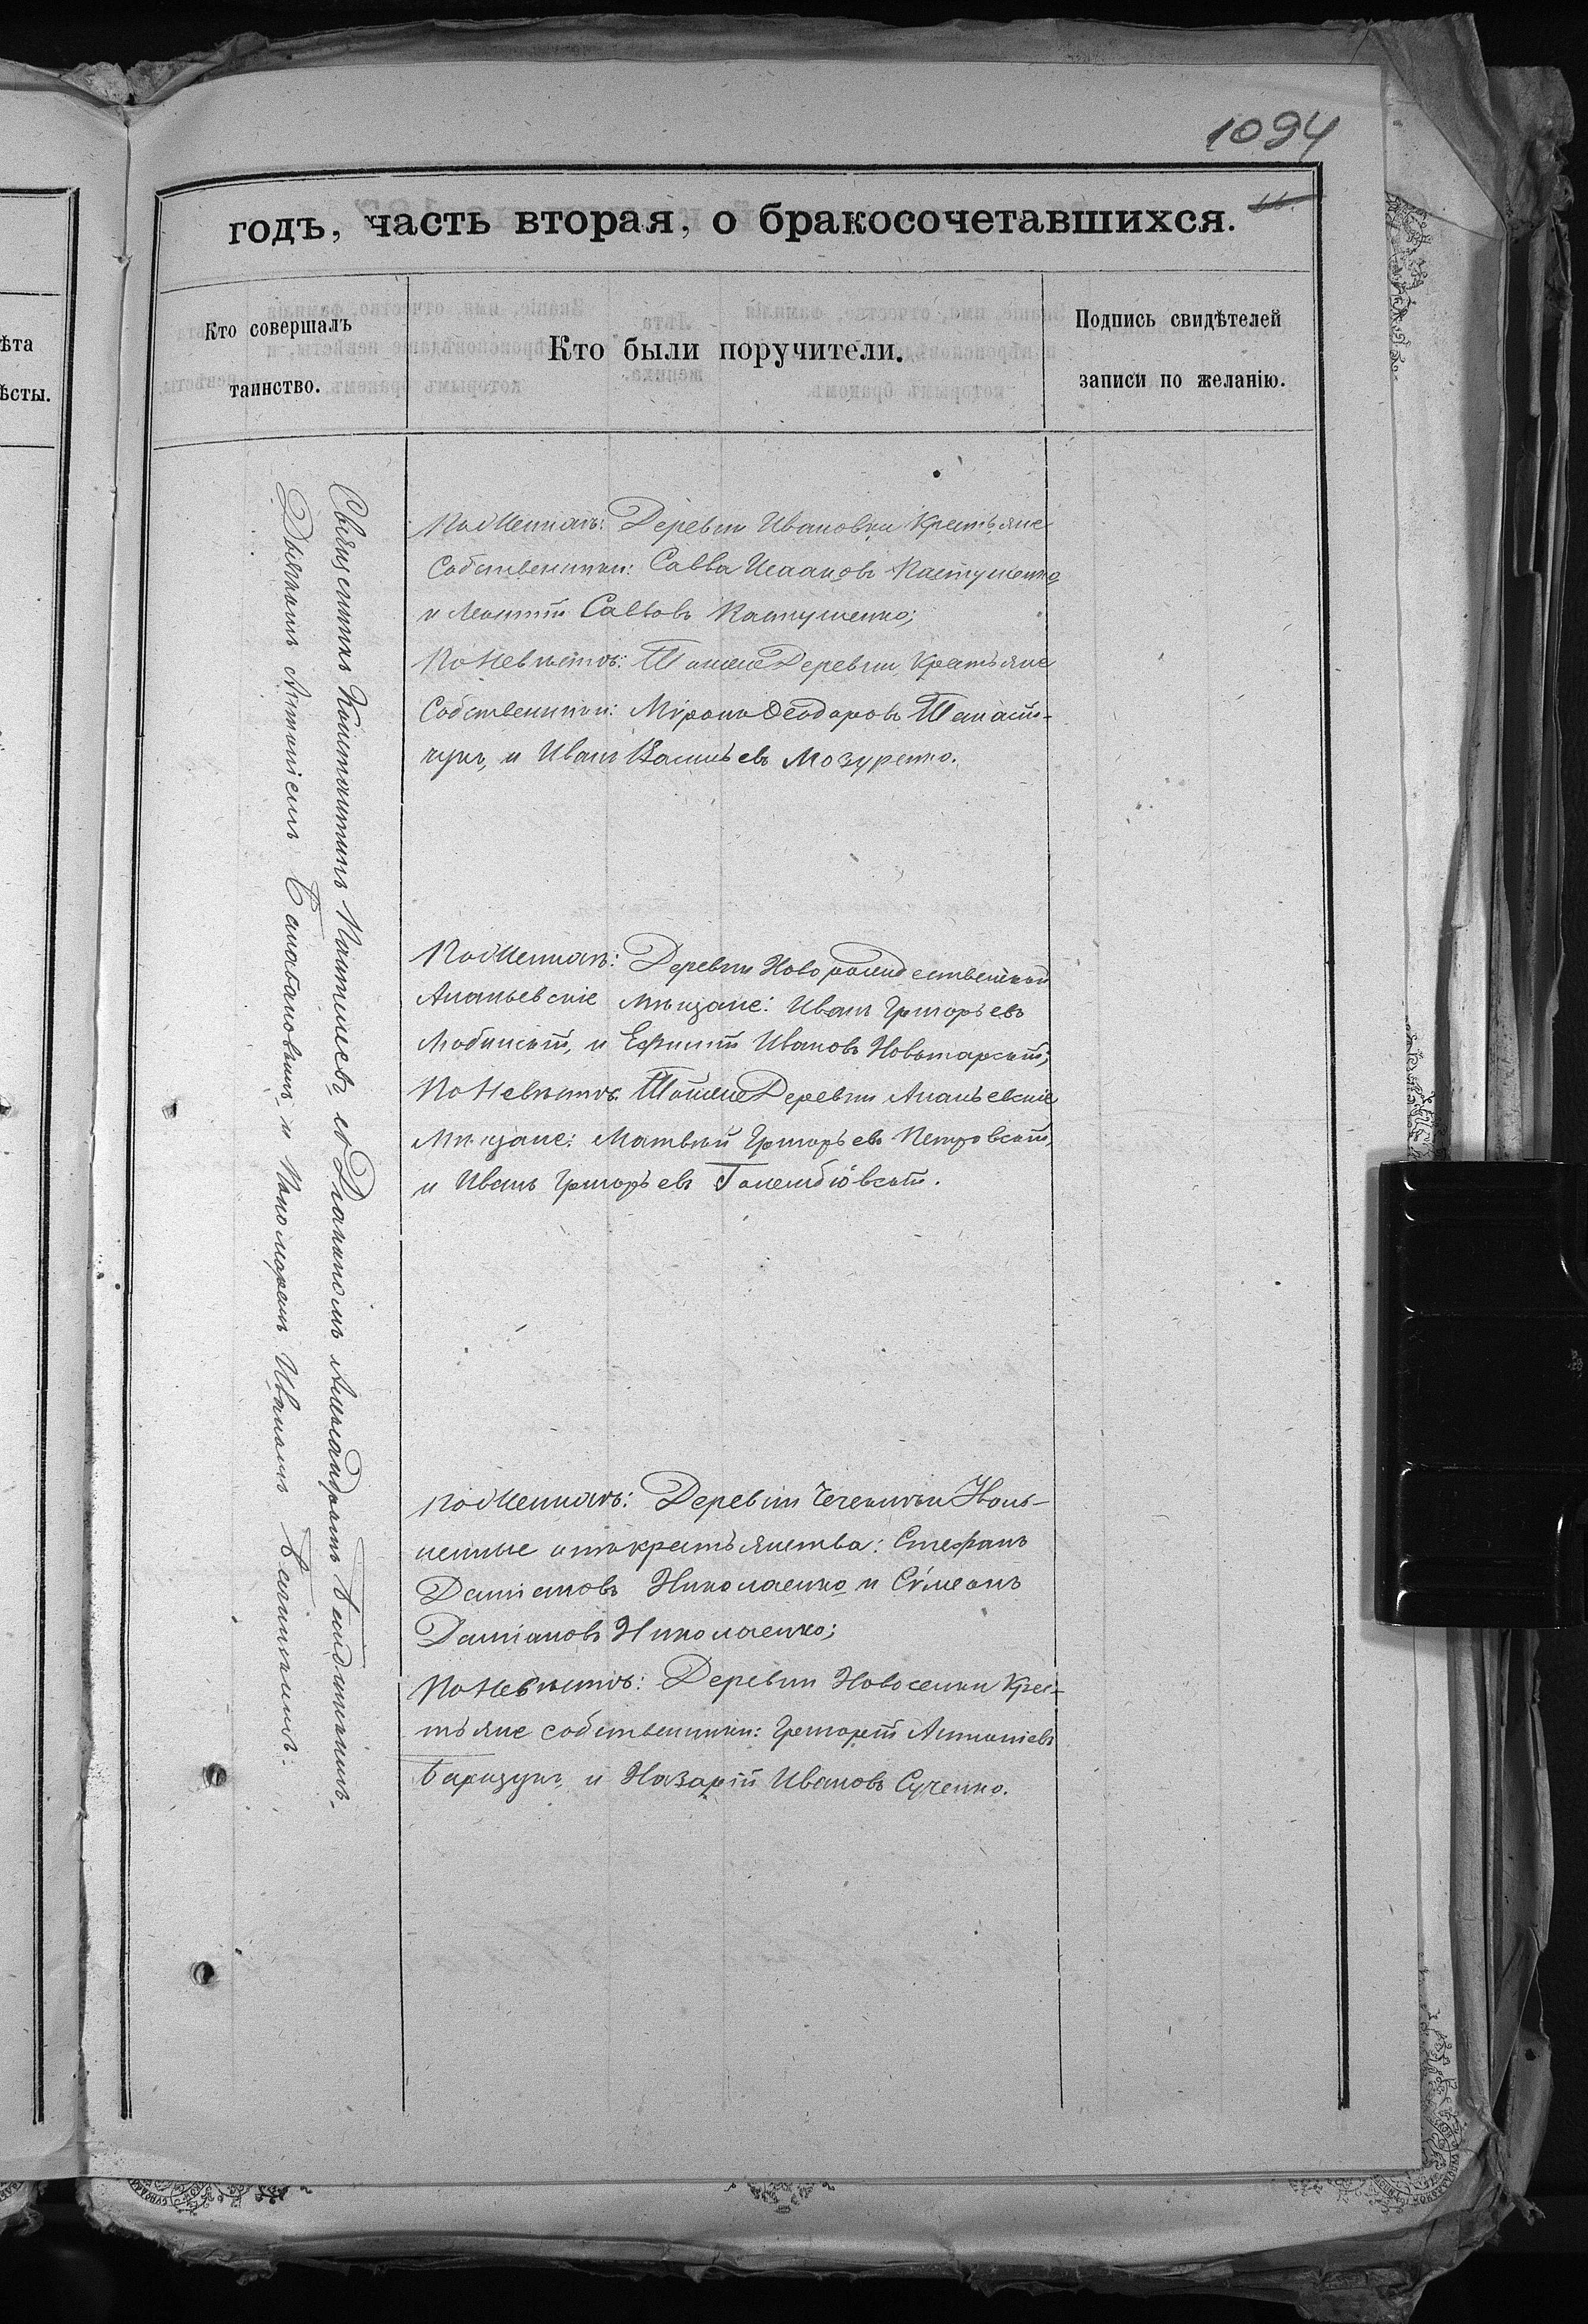 1094
годъ, часть вторая, о бракосочетавшихся.
ѣта
ѣсты.
Кто совершалъ
таинство.
Кто были поручители.
Подпись свидѣтелей
записи по желанію.
Священникъ Константинъ съ Діакономъ Александромъ
Дьячкомъ Антоніемъ и Пономаремъ Иваномъ
По Женихѣ: Деревни Ивановки Крестьяне
Собственники: Савва Исааковъ Пастушенко
и Леонтій Саввовъ Пастушенко;
По Невѣстѣ: Тойже Деревни, Крестьяне
Собственники: Мѵронъ Ѳеодоровъ
и Иванъ Васильевъ Мозуренко.
По Женихѣ: Деревни Новорождественской
Ананьевскіе Мѣщане: Иванъ Григорьевъ
и Ефимій Ивановъ Новотарскій;
По Невѣстѣ: Тойже Деревни Ананьевскіе
Мѣщане: Матвѣй Григорьевъ Петровскій,
и Иванъ Григорьевъ Голембіовскій.
По Женихѣ: Деревни
отъ крестьянства: Стефанъ
Даміановъ Николаенко и Сѵмеонъ
Даміановъ Николаенко;
По Невѣстѣ: Деревни Новоселки Крес-
тьяне собственники: Григорій Антоніевъ
и Назарій Ивановъ Сученко.